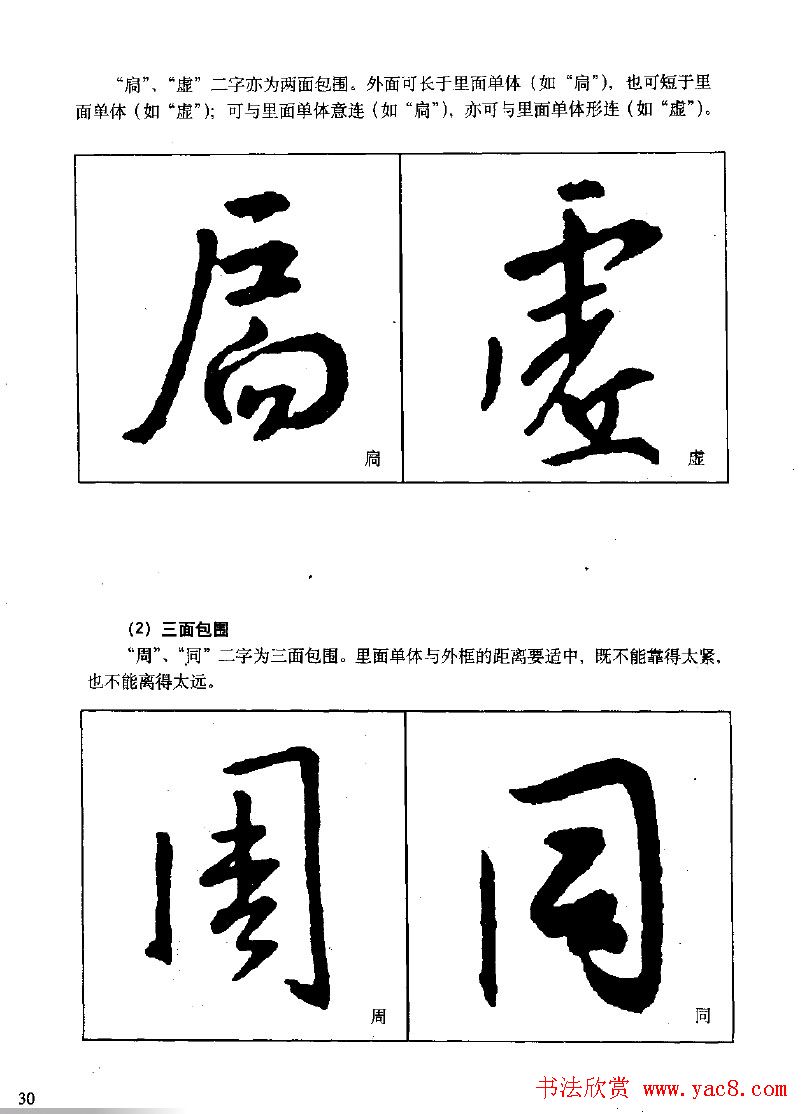 “扃”、“虚”二字亦为两面包围。外面可长于里面单体（如“扃”），也可短于里
面单体（如“虚”）；可与里面单体意连（如“扃”），亦可与里面单体形连（如“虚”）。
扃 虚
扃 虚
（2）三面包围
“周”、“同”二字为三面包围。里面单体与外框的距离要适中，既不能靠得太紧，
也不能离得太远。
周 同
周 同
30
书法欣赏 www.yac8.com